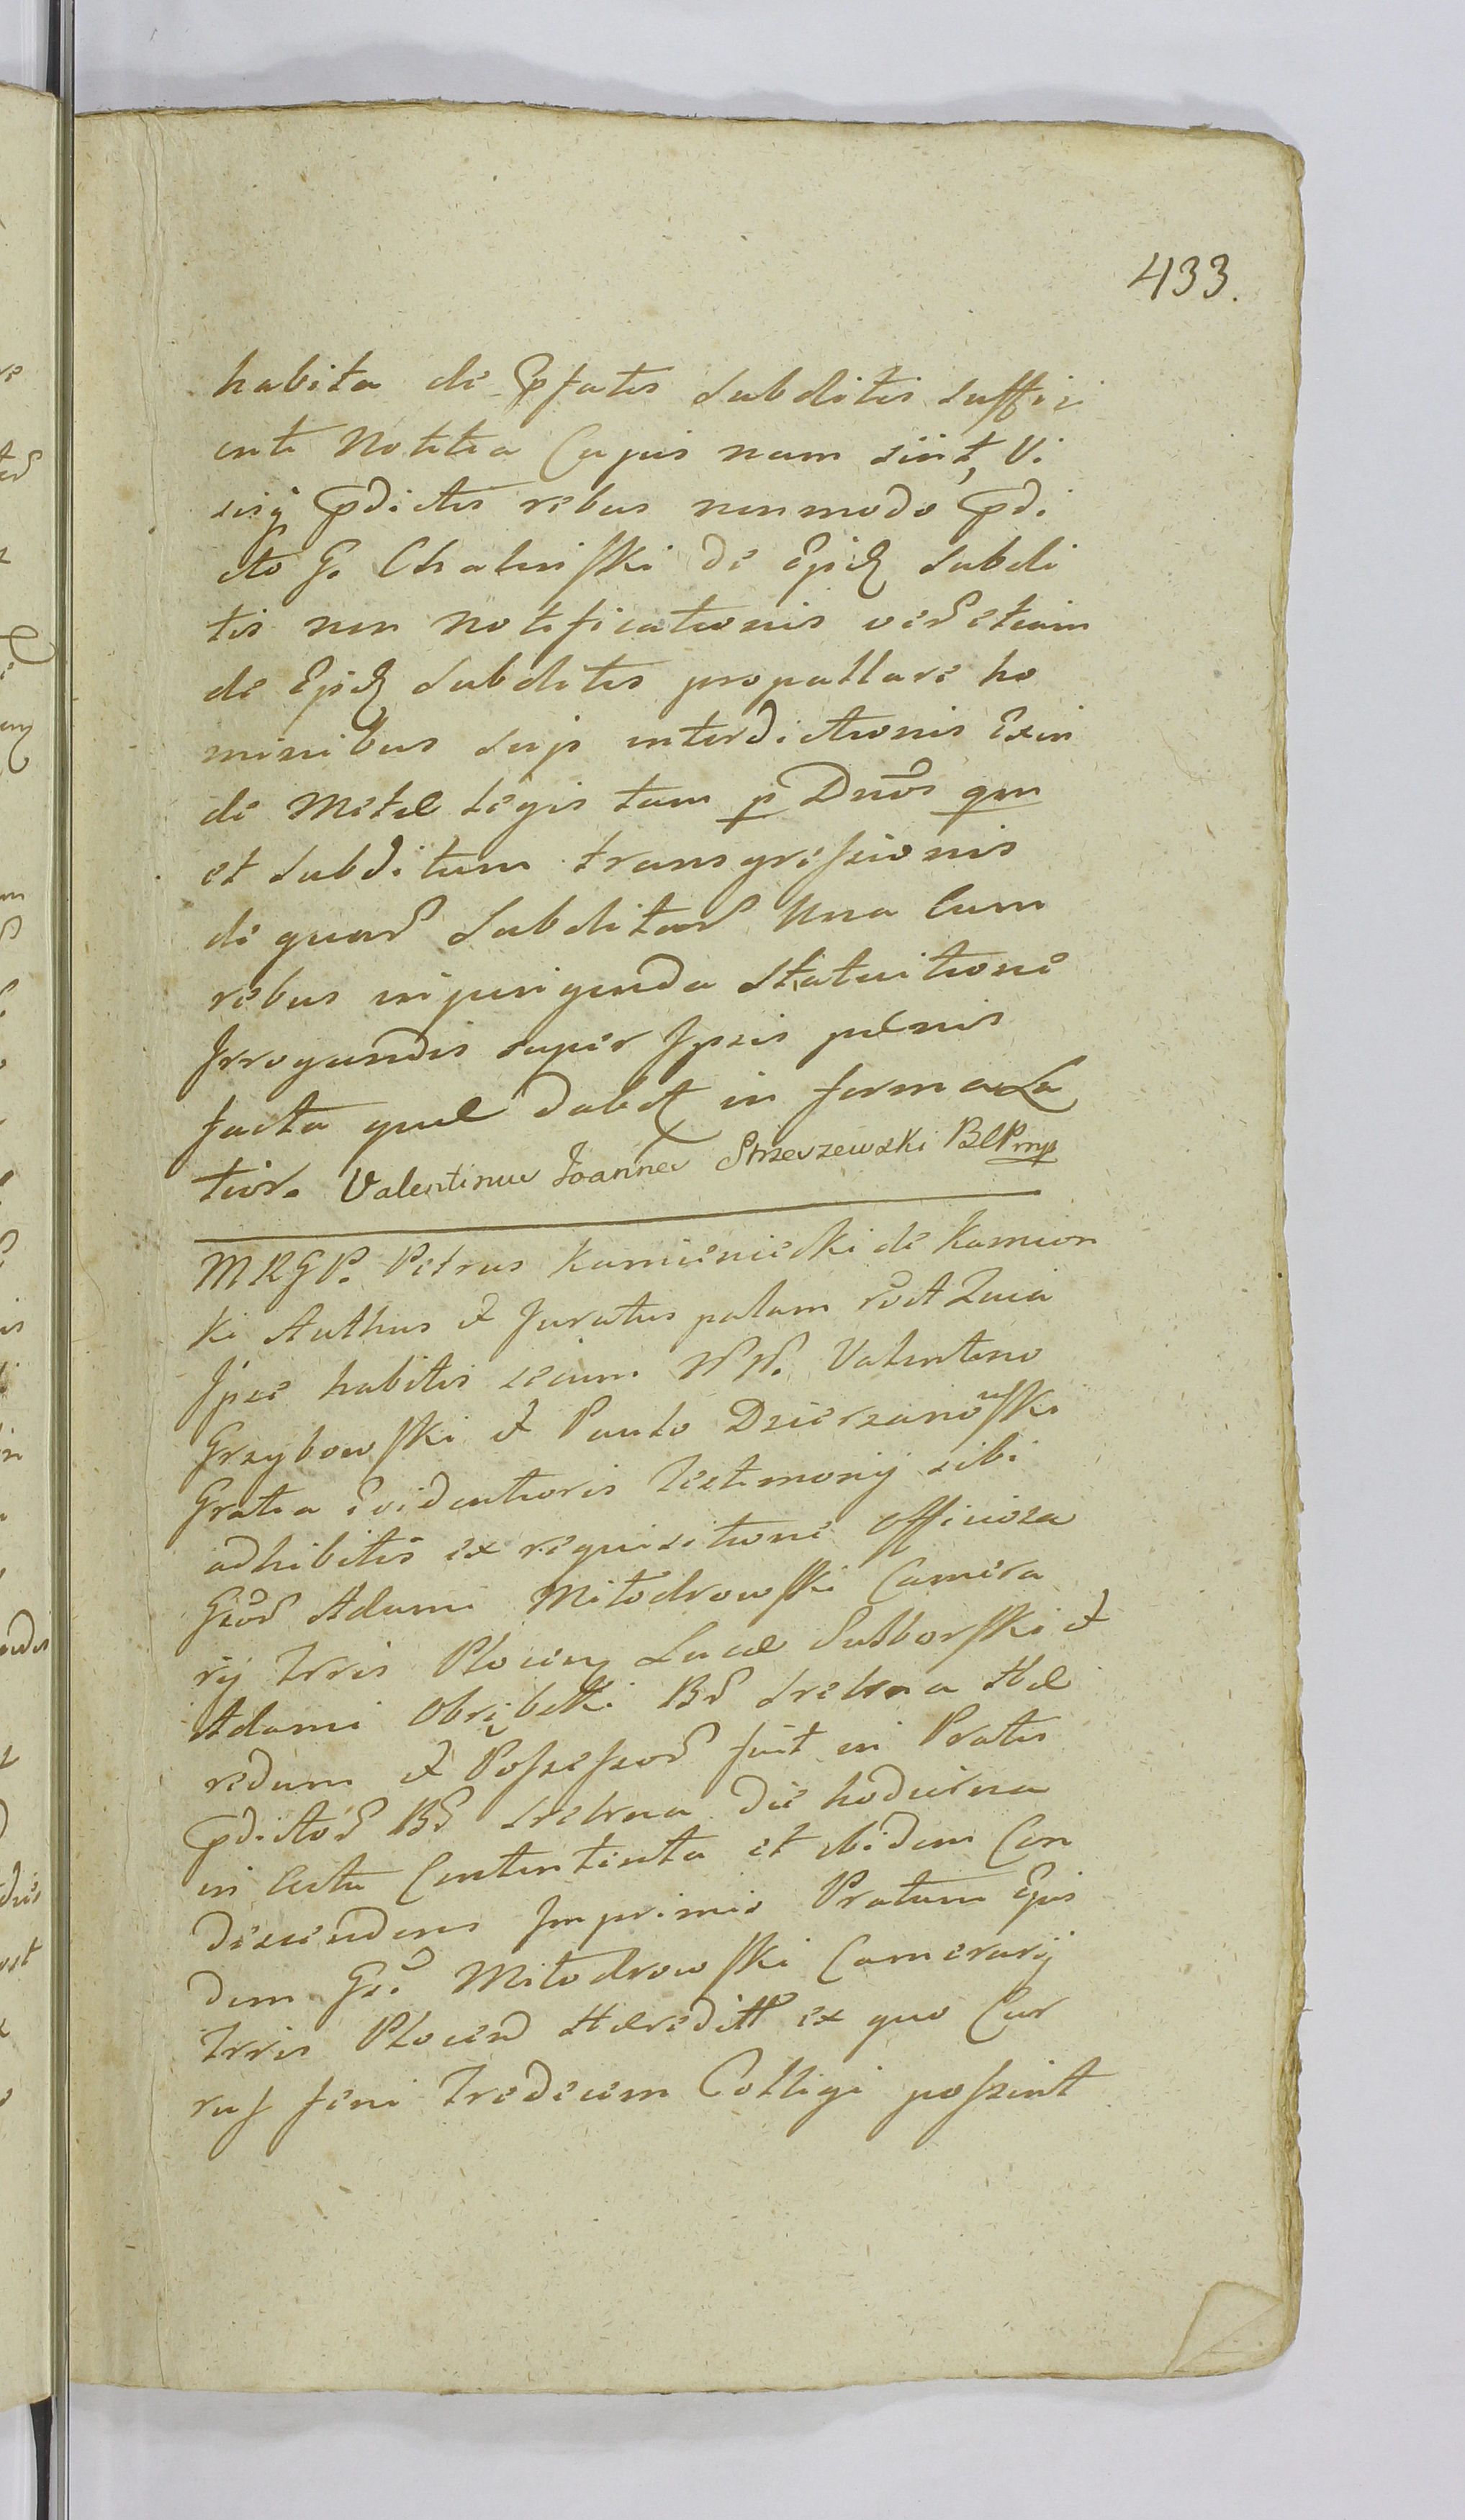 433.
habita de ꝑfatis subditis suffici
enti Notitia Cujus nam sint, Vi
sisq ꝑdictis rebus nonmodo ꝑdi
cto G. Chalinski de Epid subdi
tis non notificationis veretiam
de Epid subditis propallare ho
minibus suis interdictionis Exin
de Metae legis tam p Dnos qm
et subditum transgressionis
de quar Subditor Una Cum
rebus injungenda Statuitione
Irrogandis super Ipsis paenis
facta quae dabet in forma La
tior. Valentinus Joannes Strzerzewski BCP mp
MRGP. Petrus Kamienieski de Kamion
ki Authus et Juratus palam
Ipse habitis secum NN. Valentino
Grzybowski et Paulo Dzierzanowski
Gratia Evidentioris Testimonij sibi
adhibitis ex requisitione officiosa
Adami Mitodrowski Camera
rij Trris Plocen Lucae Sulborski et
Adami Obrębski Br Srebrna Hae
redum et Possessor fuit in Pratis
ꝑdictor Br Srebrna die hodierna
in actu Contententa et ibidem Con
descendens Imprimis Pratum Ejus
dem Gs. Mitodrowski Camerarij
Trris Plocen Haeredit ex quo Cur
rus feni Tredecim Colligi possint